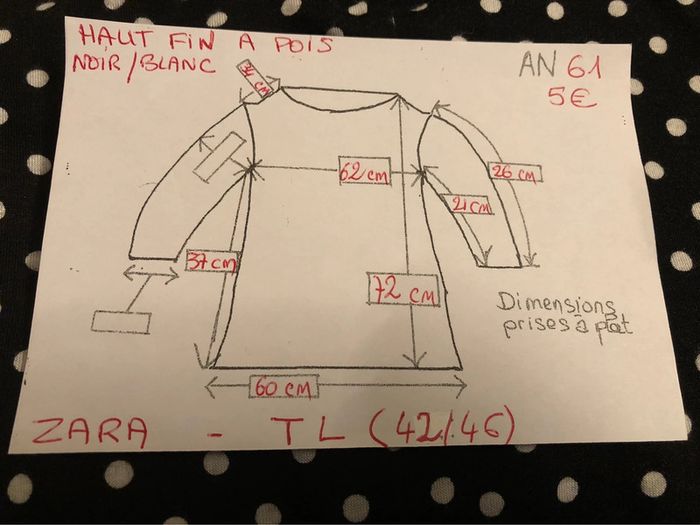 HAUT FIN A POIS
NOIR/BLANC
AN 61
5€
cm
62 cm
26 cm
21 cm
37 cm
72 cm
Dimensions
prises à plat
60 cm
ZARA - TL (42/46)